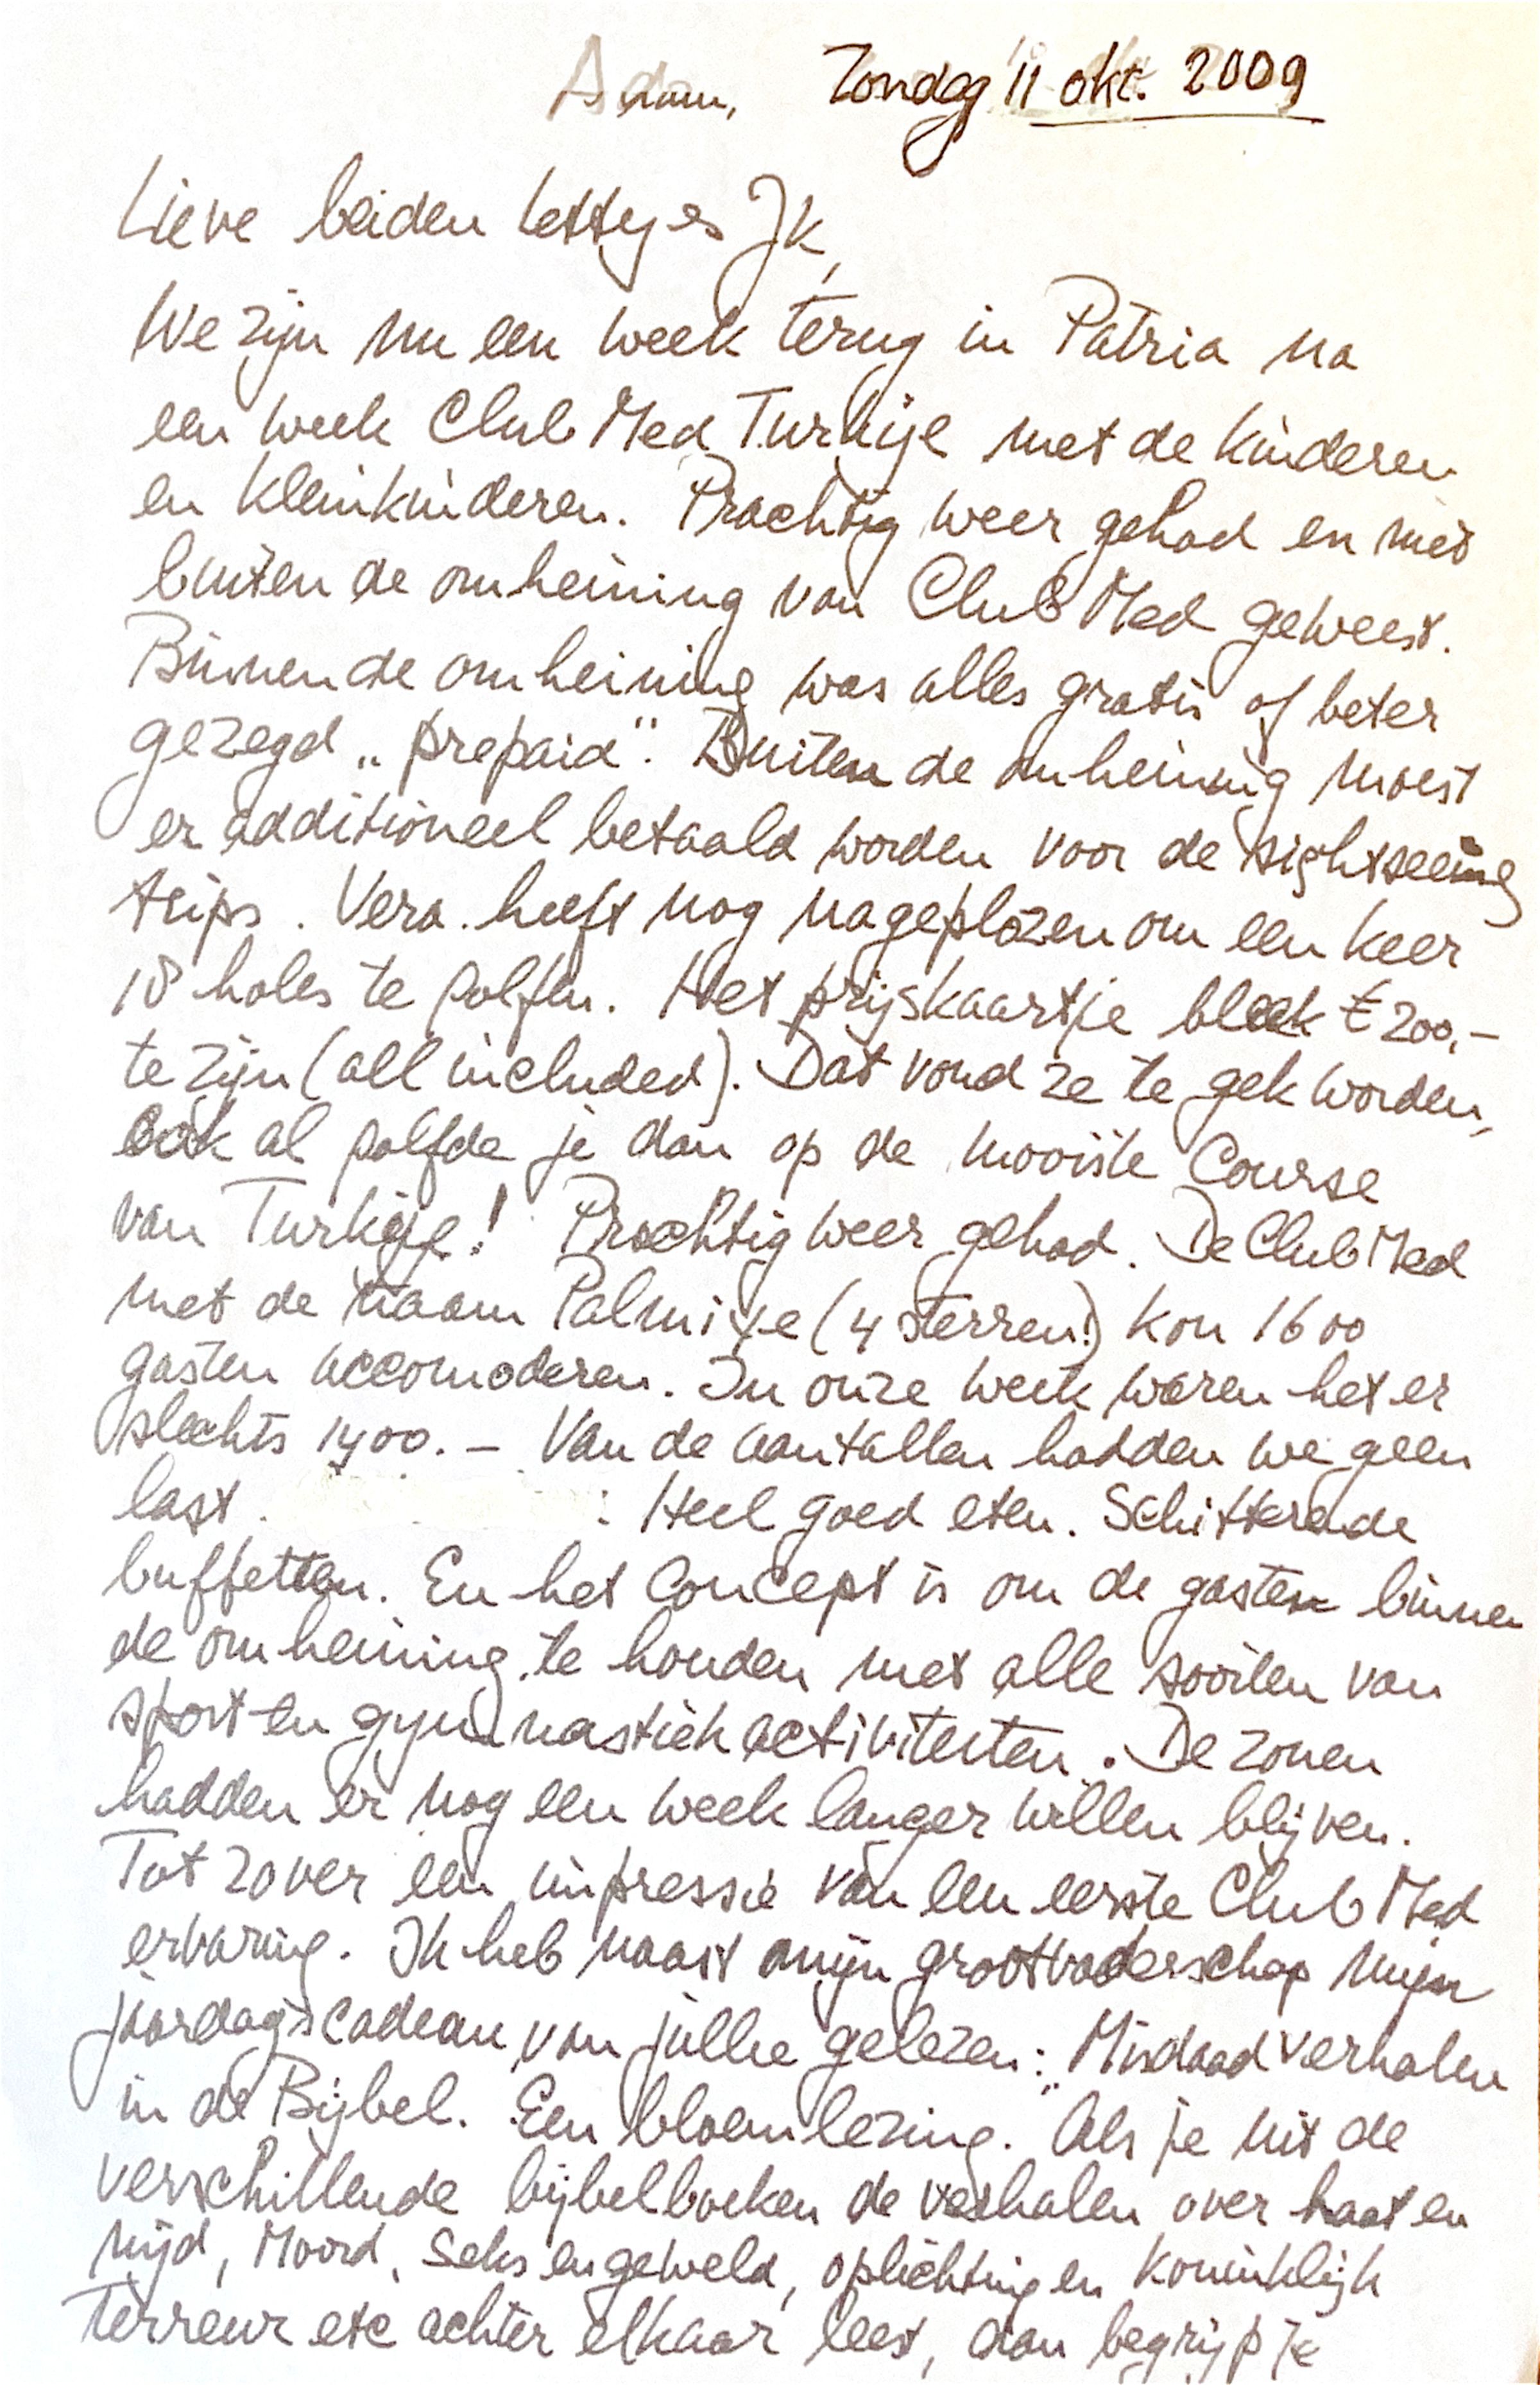 Adam, Zondag 11 okt. 2009
Lieve beiden Letty es JK,
We zijn nu een week terug in Patria na
een week Club Med Turkije met de kinderen
en kleinkinderen. Prachtig weer gehad en niet
buiten de omheining van Club Med geweest.
Binnen de omheining was alles gratis of beter
gezegd „prepaid". Buiten de omheining moest
er additioneel betaald worden voor de sightseeing
trips. Vera heeft nog nageplozen om een keer
18 holes te golfen. Het prijskaartje bleek € 200,-
te zijn (all included). Dat vond ze te gek worden,
ook al golfde je dan op de mooiste Course
van Turkije! Prachtig weer gehad. De Club Med
met de naam Palmiye (4 sterren!) kon 1600
gasten accomoderen. In onze week waren het er
slechts 1400. - Van de aantallen hadden we geen
last. : Heel goed eten. Schitterende
buffetten. En het Concept is om de gasten binnen
de omheining te houden met alle soorten van
sport en gymnastiek activiteiten. De zonen
hadden er nog een week langer willen blijven.
Tot zover een impressie van een eerste Club Med
ervaring. Ik heb naast mijn grootvaderschap mijn
jaardagscadeau van jullie gelezen: „Misdaadverhalen
in de Bijbel. Een bloemlezing. Als je uit de
verschillende bijbelboeken de verhalen over haat en
nijd, Moord, seks en geweld, oplichting en Koninklijk
Terreur etc achter elkaar leest, dan begrijp je